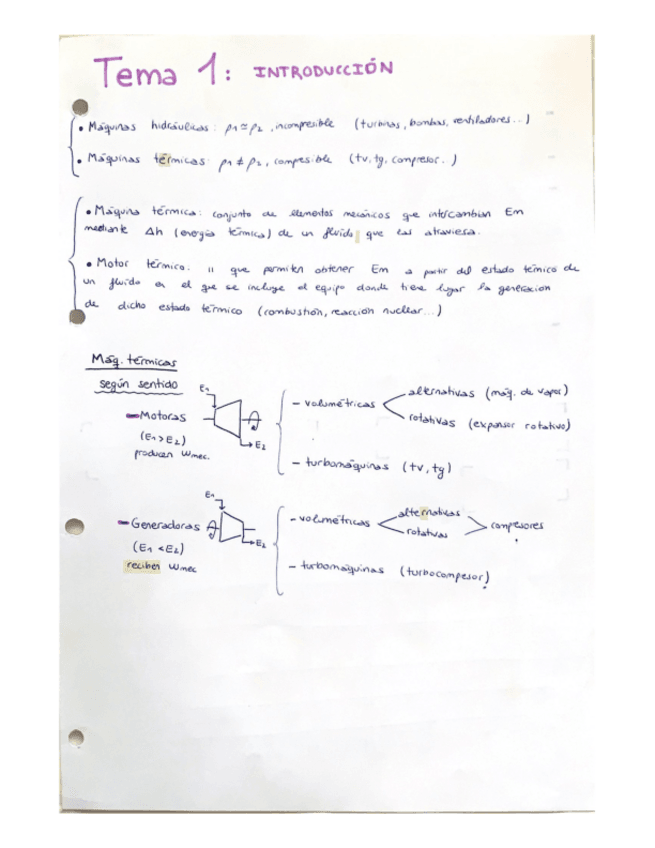 Tema 1: INTRODUCCIÓN
• Máquinas hidráulicas: ρ1 ≃ ρ2, incompresible (turbinas, bombas, ventiladores...)
• Máquinas térmicas: ρ1 ≠ ρ2, compresible (tv, tg, compresor..)
• Máquina térmica: conjunto de elementos mecánicos que intercambian Em
mediante Δh (energía térmica) de un fluido que las atraviesa.
• Motor térmico: " que permiten obtener Em a partir del estado térmico de
un fluido en el que se incluye el equipo donde tiene lugar la generación
de dicho estado térmico (combustión, reacción nuclear...)
Máq. térmicas
según sentido
- Motoras
(E1 > E2)
producen Wmec.
E1
E2
- volumétricas
alternativas (máq. de vapor)
rotativas (expansor rotativo)
- turbomáquinas (tv, tg)
- Generadoras
(E1 < E2)
reciben Wmec
E1
E2
- volumétricas
alternativas
rotativas
compresores
- turbomáquinas (turbocompesor)